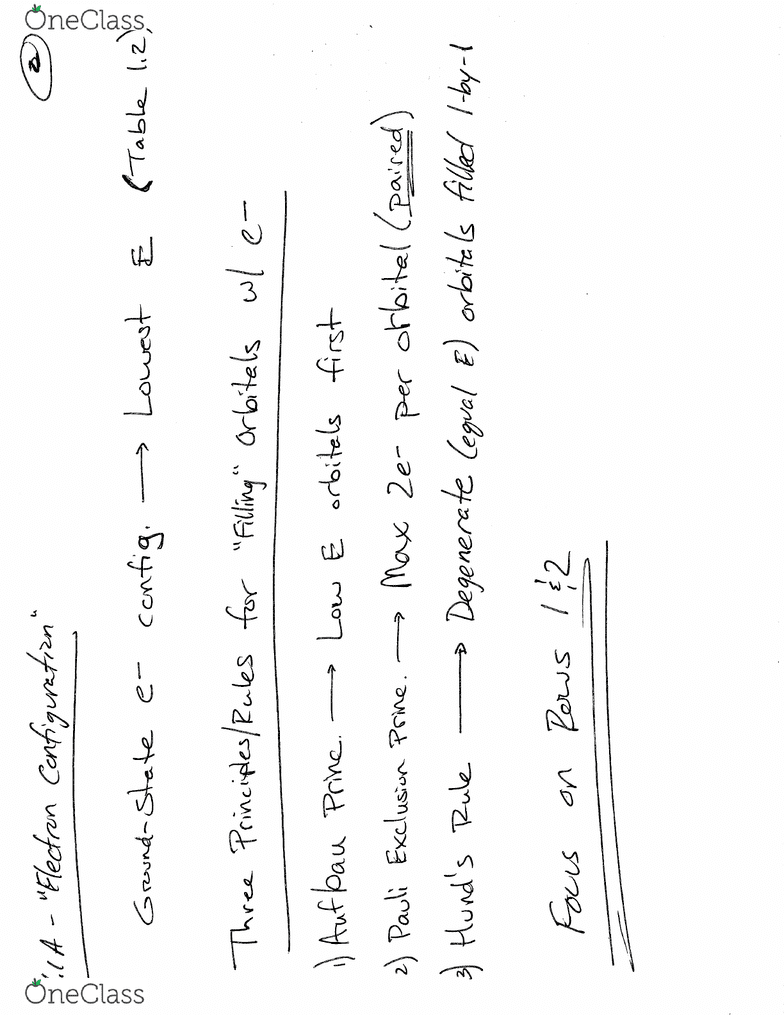 OneClass
②
.1A - "Electron Configuration"
Ground-State e- config. → Lowest E (Table 1.2)
Three Principles/Rules for "Filling" Orbitals w/ e-
1) Aufbau Princ. → Low E orbitals first
2) Pauli Exclusion Princ. → Max 2e- per orbital (paired)
3) Hund's Rule → Degenerate (equal E) orbitals filled 1-by-1
Focus on Rows 1 & 2
OneClass